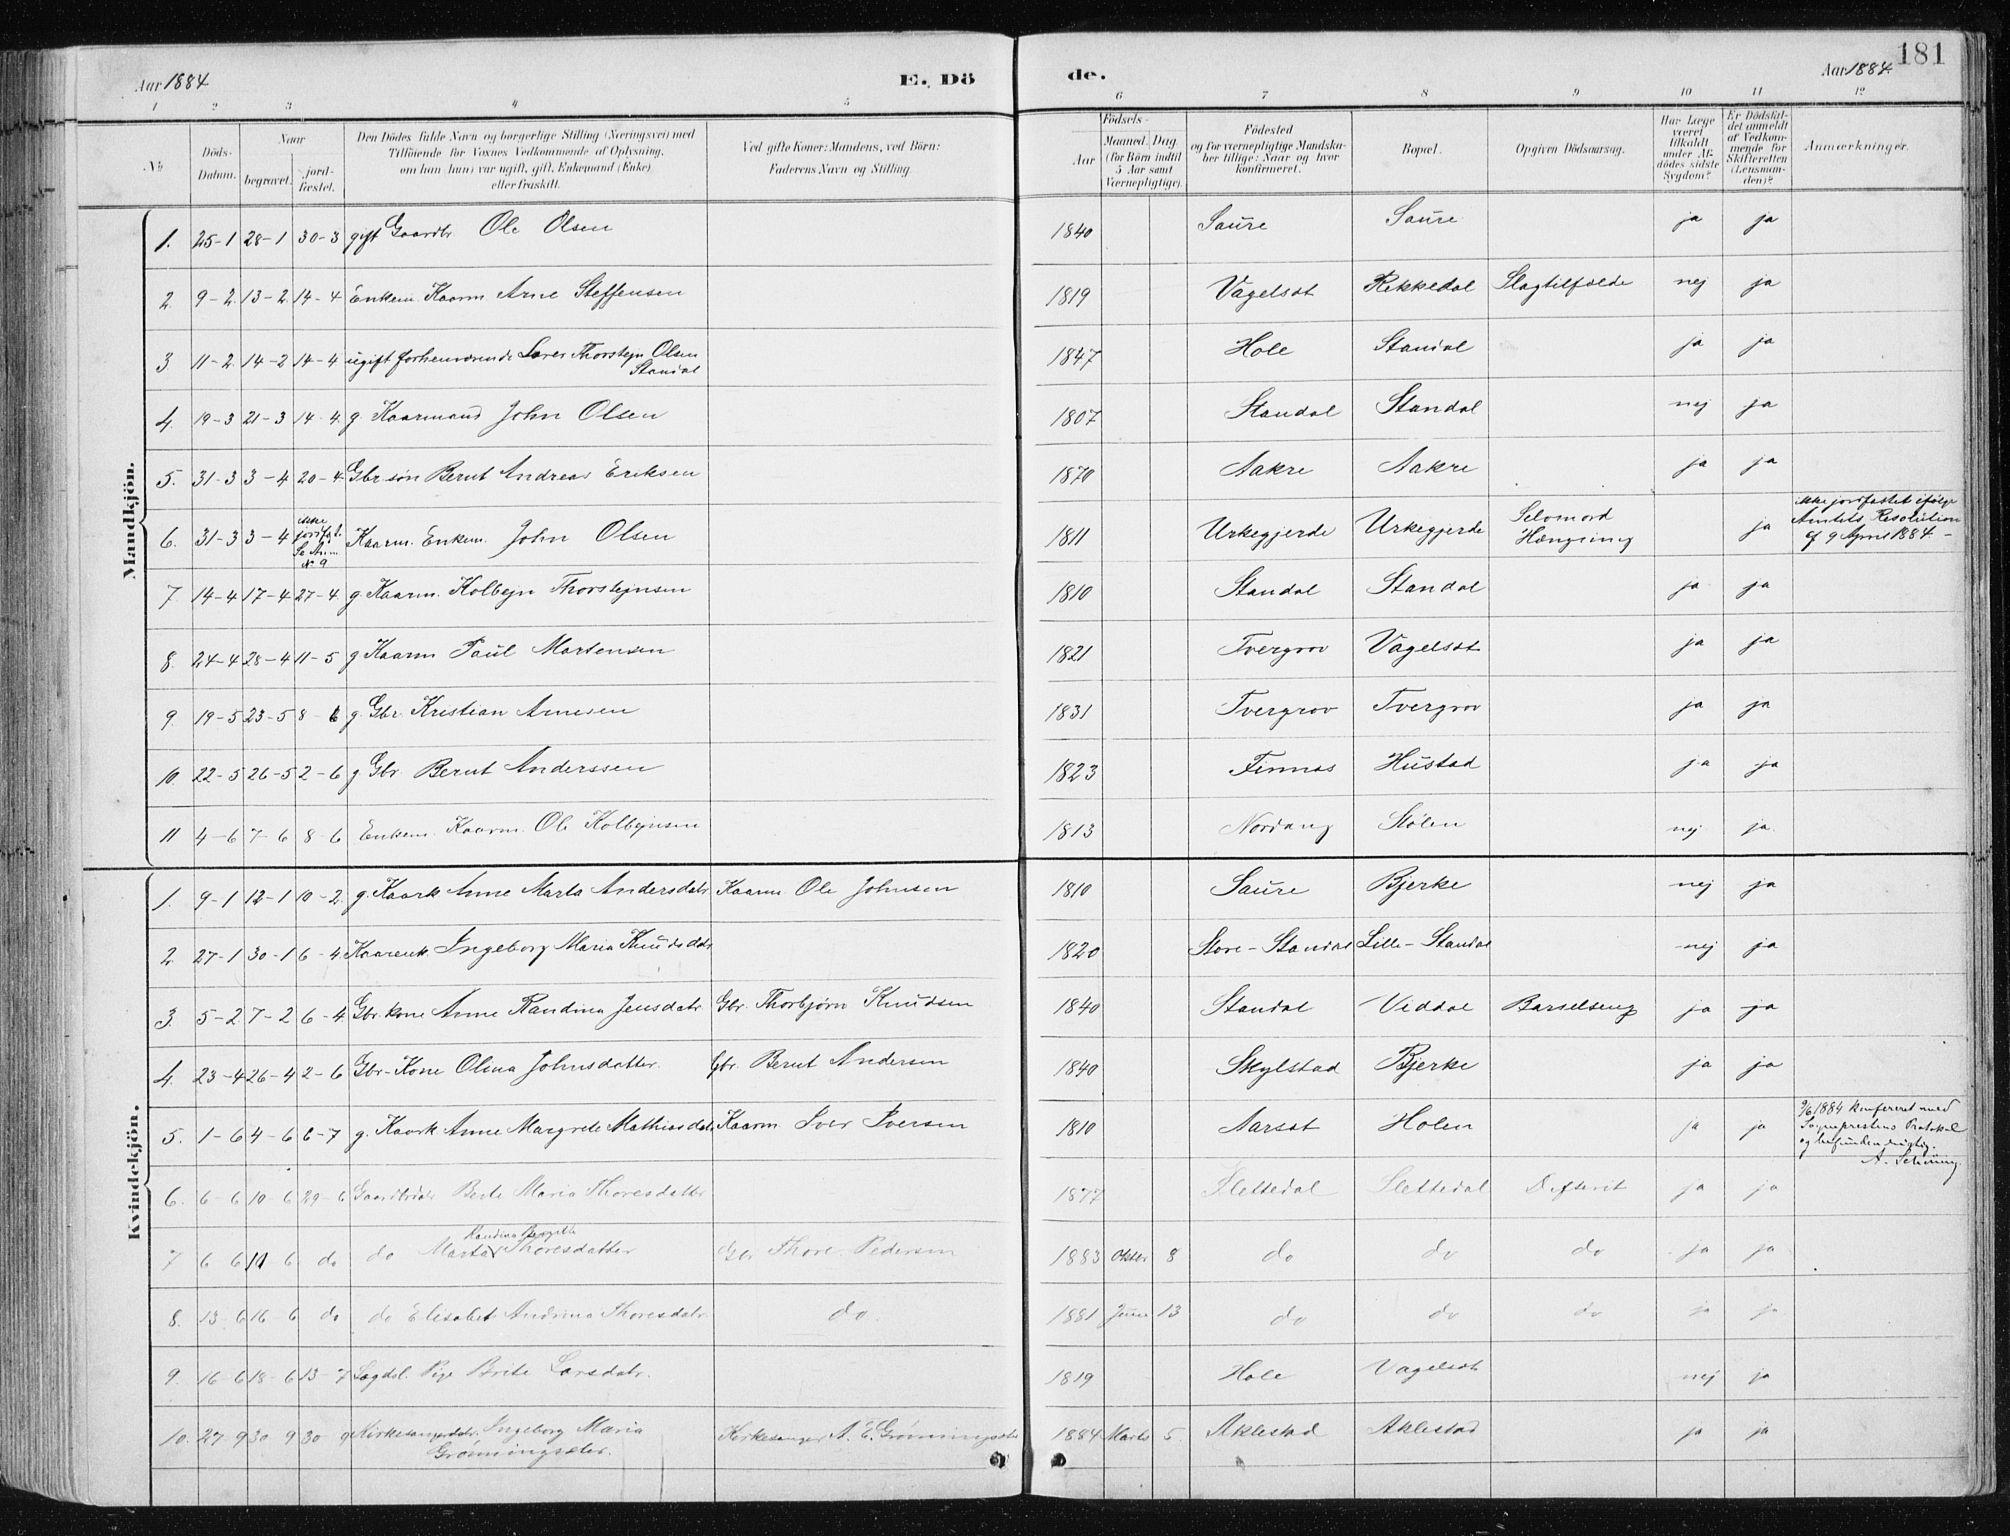 181
Aar 1884
E. Dö
de.
Aar 1884
1 2 3 4 5 6 7 8 9 10 11 12
No
Döds-Datum.
Naar
begravet.
jord-fæstet.
Den Dödes fulde Navn og borgerlige Stilling (Næringsvei) med
Tilföiende for Voxnes Vedkommende af Oplysning,
om han (hun) var ugift, gift, Enkemand (Enke)
eller fraskilt.
Ved gifte Koner: Mandens, ved Börn:
Faderens Navn og Stilling.
Födsels-
Aar
Maaned. Dag.
(for Börn indtil
5 Aar samt
Værnepligtige).
Födested
og for værnepligtige Mandska-
ber tillige: Naar og hvor
konfirmeret.
Bopæl.
Opgiven Dödsaarsag.
Har Læge
været
tilkaldt
under Af-
dödes sidste
Sygdom?
Er Dödsfal-
det anmeldt
af Vedkom-
mende for
Skifteretten
(Lensman-
den)?
Anmærkninger.
Mandkjön.
1. 25-1 28-1 30-3 gift Gaardbr. Ole Olsen 1840 Saure Saure ja ja
2. 9-2 13-2 14-4 Enkem. Kaarm Arne Steffensen 1819 Vagelsæt Rekkedal Slagtilfælde nej ja
3 11-2 14-2 14-4 ugift forhenværende Lærer Thorstejn Olsen Standal 1847 Hole Standal ja ja
4. 19-3 21-3 14-4. g Kaarmand John Olsen 1807 Standal Standal nej ja
5. 31-3 3-4 20-4. Gbr søn Bernt Andreas Eriksen 1870 Aakre Aakre ja ja
6. 31-3 3-4 ikke jordfst. Se Anm. No 9 Kaarm. Enkem. John Olsen 1811 Urkegjerde Urkegjerde Selvmord Hængning ja ikke jordfæstet ifølge Amtets Resolution af 9 April 1884.-
7 14-4 17-4 27-4. g. Kaarm. Kolbejn Thorstejnsen 1810 Standal Standal ja ja
8. 24-4 28-4 11-5 g Kaarm Paul Martensen 1821 Tvergrov Vagelsæt ja ja
9. 19-5 23-5 8-6 g. Gbr. Kristian Arnesen 1831 Tvergrov Tvergrov ja ja
10. 22-5 26-5 2-6 g Gbr Bernt Anderssen 1823 Finnæs Hustad ja ja
11 4-6 7-6 8-6 Enkem. Kaarm. Ole Kolbejnsen 1813 Nordang Stølen nej ja.
Kvindekjön.
1. 9-1 12-1 10-2. g. Kaark Anne Marta Andersdatr. Kaarm. Ole Johnsen 1810 Saure Bjerke nej ja
2. 27-1 30-1 6-4 Kaarenk. Ingeborg Maria Knudsdatr 1820 Store-Standal Lille-Standal nej ja
3. 5-2 7-2 6-4. Gbr. kone Anne Randina Jensdatr. Gbr. Thorbjørn Knudsen 1840 Standal Viddal Barselseng ja ja
4. 23-4 26-4 2-6 Gbr-Kone Olina Johnsdatter. Gbr. Bernt Andersen 1840 Skylstad Bjerke ja ja
5. 1-6 4-6 6-7 g. Kaark Anne Margrete Mathiasdatr Kaarm Iver Iversen 1810 Aarsæt Holen ja ja 9/6 1884 konfereret med Sogneprestens Protokol og befunden rigtig. A. Schiøng
6. 6-6 10-6 29-6 Gaardbrdatr Berte Maria Thoresdatter 1877 Slettedal Slettedal Difterit ja ja
7 6 6 11 6 do do Marta Randina Bergitte Thoresdatter Gbr Thore Pedersen 1883 Oktbr 8 do do do ja ja
8. 13-6 16 6 do do Elisabet Andrina Thoresdatr. do 1881 Juni 13 do do do ja ja
9. 16-6 18-6 13-7 Lægdsl. Pige Brite Larsdatr. 1819 Hole Vagelsæt nej ja
10. 27 9 30 9 30 9 Kirkesangerdatr. Ingeborg Maria Grønningsæter. Kirkesanger A. E. Grønningsætr 1884 Marts 5 Aklestad Aklestad ja ja